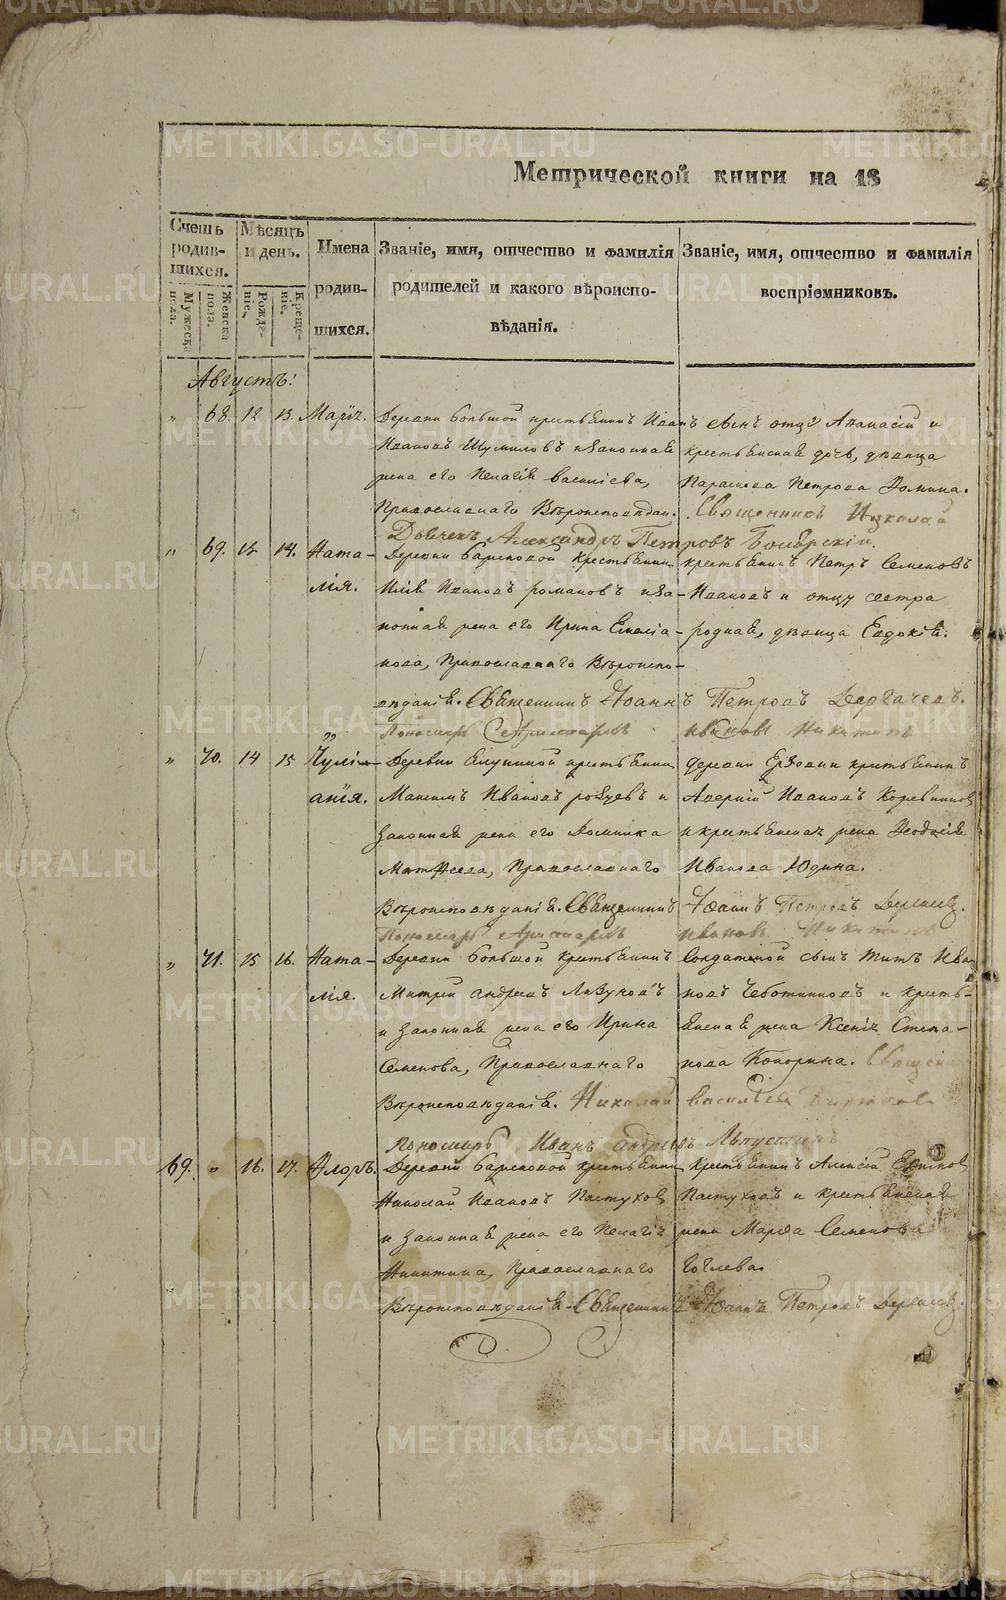 Метрической книги на 18
Счетъ родив-шихся.
Мужеска пола.
Женска пола.
Мѣсяцъ и день.
Рожде-ніе.
Креще-ніе.
Имена
родив-
шихся.
Званіе, имя, отчество и фамилія
родителей и какого вѣроиспо-
вѣданія.
Званіе, имя, отчество и фамилія
воспріемниковъ.
Августъ:
" 68. 12 13 Марія.
Деревни большой крестьянинъ Иванъ
Ивановъ Шумиловъ изаконная
жена его Пелагія васильева,
Православнаго Вѣроисповѣдан.
сынъ отцу Афанасій и
крестьянская дочь, дѣвица
Параскева Петрова Фомина.
Священникъ Николай
Дьячекъ Александръ Петровъ
" 69. 13 14. Ната-
лія.
Деревни барсковой Крестьянин
Илія Ивановъ романовъ иза-
конная жена его Ирина Емелія-
нова, Православнаго Вѣроиспо-
вѣданія. Священникъ Іоаннъ Петровъ Дергачевъ.
крестьянинъ Петръ Семеновъ
Ивановъ и отцу сестра
родная, дѣвица Евдокія.
Пономарь Аристархъ Ивановъ Никитинъ
" 70. 14 15 Іулі-
анія.
Деревни крестьянин
Максимъ Ивановъ и
Законная жена его Домника
Матѳеева, Православнаго
Вѣроисповѣданія. Священникъ Іоаннъ Петровъ Дергачев.
деревни крестьянинъ
Аверкій Ивановъ
и крестьянская жена Ѳеодосія
Иванова Юдина.
Пономарь Аристархъ Ивановъ Никитинъ
" 71. 15 16. Ната-
лія.
Деревни большой крестьянинъ
Митрей андреевъ
и Законная жена его Ирина
Семенова, Православнаго
Вѣроисповѣданія. Николай
Солдатской сынъ Титъ Ива-
новъ Чеботниковъ и кресть-
янская жена Ксенія Степа-
нова
Пономарь Иванъ андреевъ
69. " 16. 17. Флоръ.
Деревни барсковой крестьянин
Николай Ивановъ Пастухов
и Законная жена его Пелагія
Никитина, Православнаго
Вѣроисповѣданія. Священникъ Іоаннъ Петровъ Дергачев.
Крестьянинъ Алексій
Пастуховъ и крестьянская
жена Марѳа Семенова
METRIKI.GASO-URAL.RU